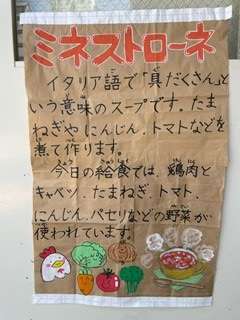 ミネストローネ
イタリア語で「具だくさん」と
いう意味のスープです。たま
ねぎや にんじん、トマトなどを
煮て作ります。
今日の給食では、鶏肉と
キャベツ、たまねぎ、トマト、
にんじん、パセリなどの野菜が
使われています。